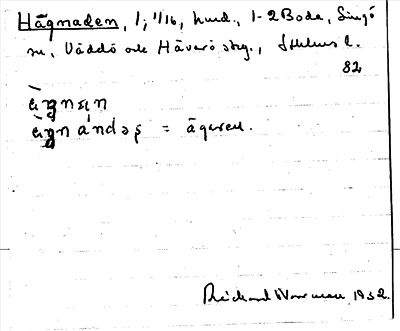 Hägnaden, 1; 1/16, hmd., 1-2 Boda, Singö
sn, Väddö och Häverö skg., Sthlms l.
82
ägnan
ägn andəs = ägaren.
Rickard Norrman 1932.